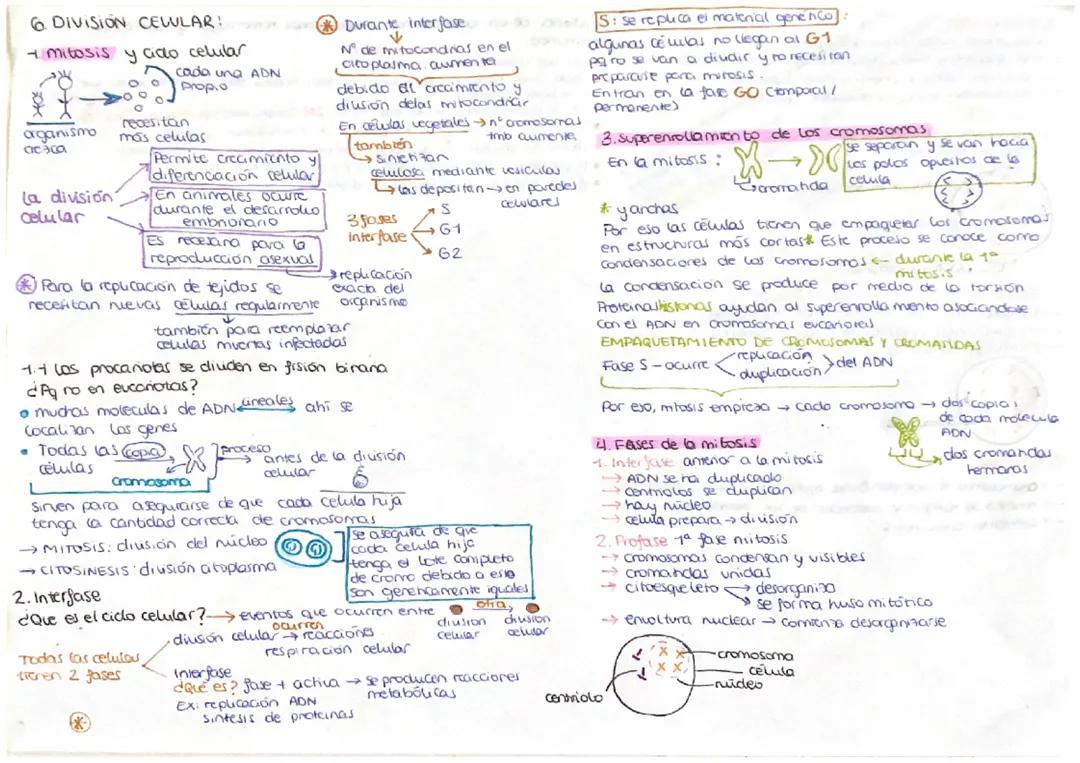 6. DIVISIÓN CELULAR:
1 mitosis y ciclo celular
cada una ADN
propio
organismo
crezca
necesitan
más celulas
La división
celular
Permite crecimiento y
diferenciación celular
En animales ocurre
durante el desarrollo
embrionario
Es necesaria para la
reproducción asexual
replicación
exacta del
organismo
* Para la replicación de tejidos se
necesitan nuevas células regularmente
también para reemplazar
celulas muertas infectadas
1.1 Los procariotas se dividen en fisión binaria
¿Pq no en eucariotas?
• muchas moleculas de ADN lineales ahí se
localizan los genes
• Todas las copia
células
cromosoma
proceso
antes de la división
celular
sirven para asegurarse de que cada celula hija
tenga la cantidad correcta de cromosomas
→ MITOSIS: división del núcleo
→ CITOSINESIS: división citoplasma
se asegura de que
cada celula hija
tenga el lote completo
de cromo debido a eso
son geneticamente iguales
2. Interfase
¿Que es el ciclo celular? → eventos que ocurren entre
division
celular
otra
division
celular
Todas las celulas
tienen 2 fases
ocurren
división celular → reacciones
respiración celular
Interfase
¿Qué es? fase + activa → se producen reacciones
metabólicas
Ex: replicación ADN
sintesis de proteinas
*
* Durante interfase
Nº de mitocondrias en el
citoplasma aumenta
debido al crecimiento y
división de las mitocondrias
En células vegetales → nº cromosomas
tmb aumenta
también
→ sintetizan
celulosa mediante vesiculas
→ las depositan → en paredes
celulares
3 fases
interfase
S
G1
G2
S: se replica el material genético:
algunas células no llegan al G1
pq no se van a dividir y no necesitan
prepararse para mitosis.
Entran en la fase G0 (temporal /
permanente)
3. superenrollamiento de los cromosomas
En la mitosis:
cromatida
se separan y se van hacia
los polos opuestos de la
célula
* y anchas
Por eso las células tienen que empaquetar los cromosomas
en estructuras más cortas* Este proceso se conoce como
condensaciones de los cromosomas ← durante la 1ª
mitosis.
La condensación se produce por medio de la torsión
Proteinas histonas ayudan al superenrollamiento asociandose
con el ADN en cromosomas eucariotes
EMPAQUETAMIENTO DE CROMOSOMAS Y CROMATIDAS
Fase S - ocurre
replicación
duplicación
del ADN
Por eso, mitosis empieza → cada cromosoma → dos copias
de cada molecula
ADN
dos cromatidas
hermanas
4. Fases de la mitosis
1. Interfase anterior a la mitosis
→ ADN se ha duplicado
→ centriolos se duplican
→ hay núcleo
→ celula prepara → división
2. Profase 1ª fase mitosis
→ cromosomas condensan y visibles
→ cromatidas unidas
→ citoesqueleto → desorganiza
se forma huso mitótico
→ envoltura nuclear → comienza desorganizarse
cromosoma
célula
núcleo
centriolo